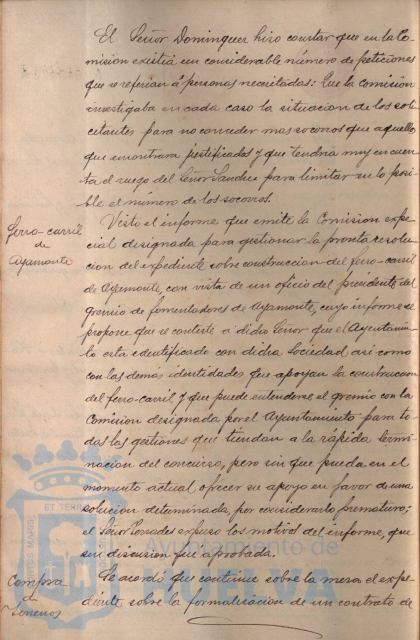 El Señor Dominguez hizo constar que en la Co-
mision existia un considerable número de peticiones
que se referian á personas necesitadas: Que la Comision
investigaba en cada caso la situacion de los soli-
citantes para no conceder mas socorros que aquellos
que encontrara justificados y que tendria muy en cuen-
ta el ruego del Señor Sanchez para limitar en lo posi-
ble el número de los socorros.
Ferro-carril
de
Ayamonte
Visto el informe que emite la Comision espe-
cial designada para gestionar la pronta resolu-
cion del expediente sobre construccion del ferro-carril
de Ayamonte, con vista de un oficio del presidente del
gremio de fomentadores de Ayamonte, cuyo informe se
propone que se conteste a dicho Señor que el Ayuntamien-
to está identificado con dicha Sociedad asi como
con las demás identidades que apoyan la construccion
del ferro-carril y que puede entenderse el gremio con la
Comision designada por el Ayuntamiento para to-
das las gestiones que tiendan a la rápida termi-
nacion del concurso, pero sin que pueda en el
momento actual ofrecer su apoyo en favor de una
solucion determinada, por considerarlo prematuro;
el Señor expuso los motivos del informe, que
sin discusion fué aprobada.
Compra
de
Terrenos
Se acordó que continue sobre la mesa el expe-
diente sobre la formalizacion de un contrato de
ET TERRA
PORTUS MARIS
Ayuntamiento de
HUELVA